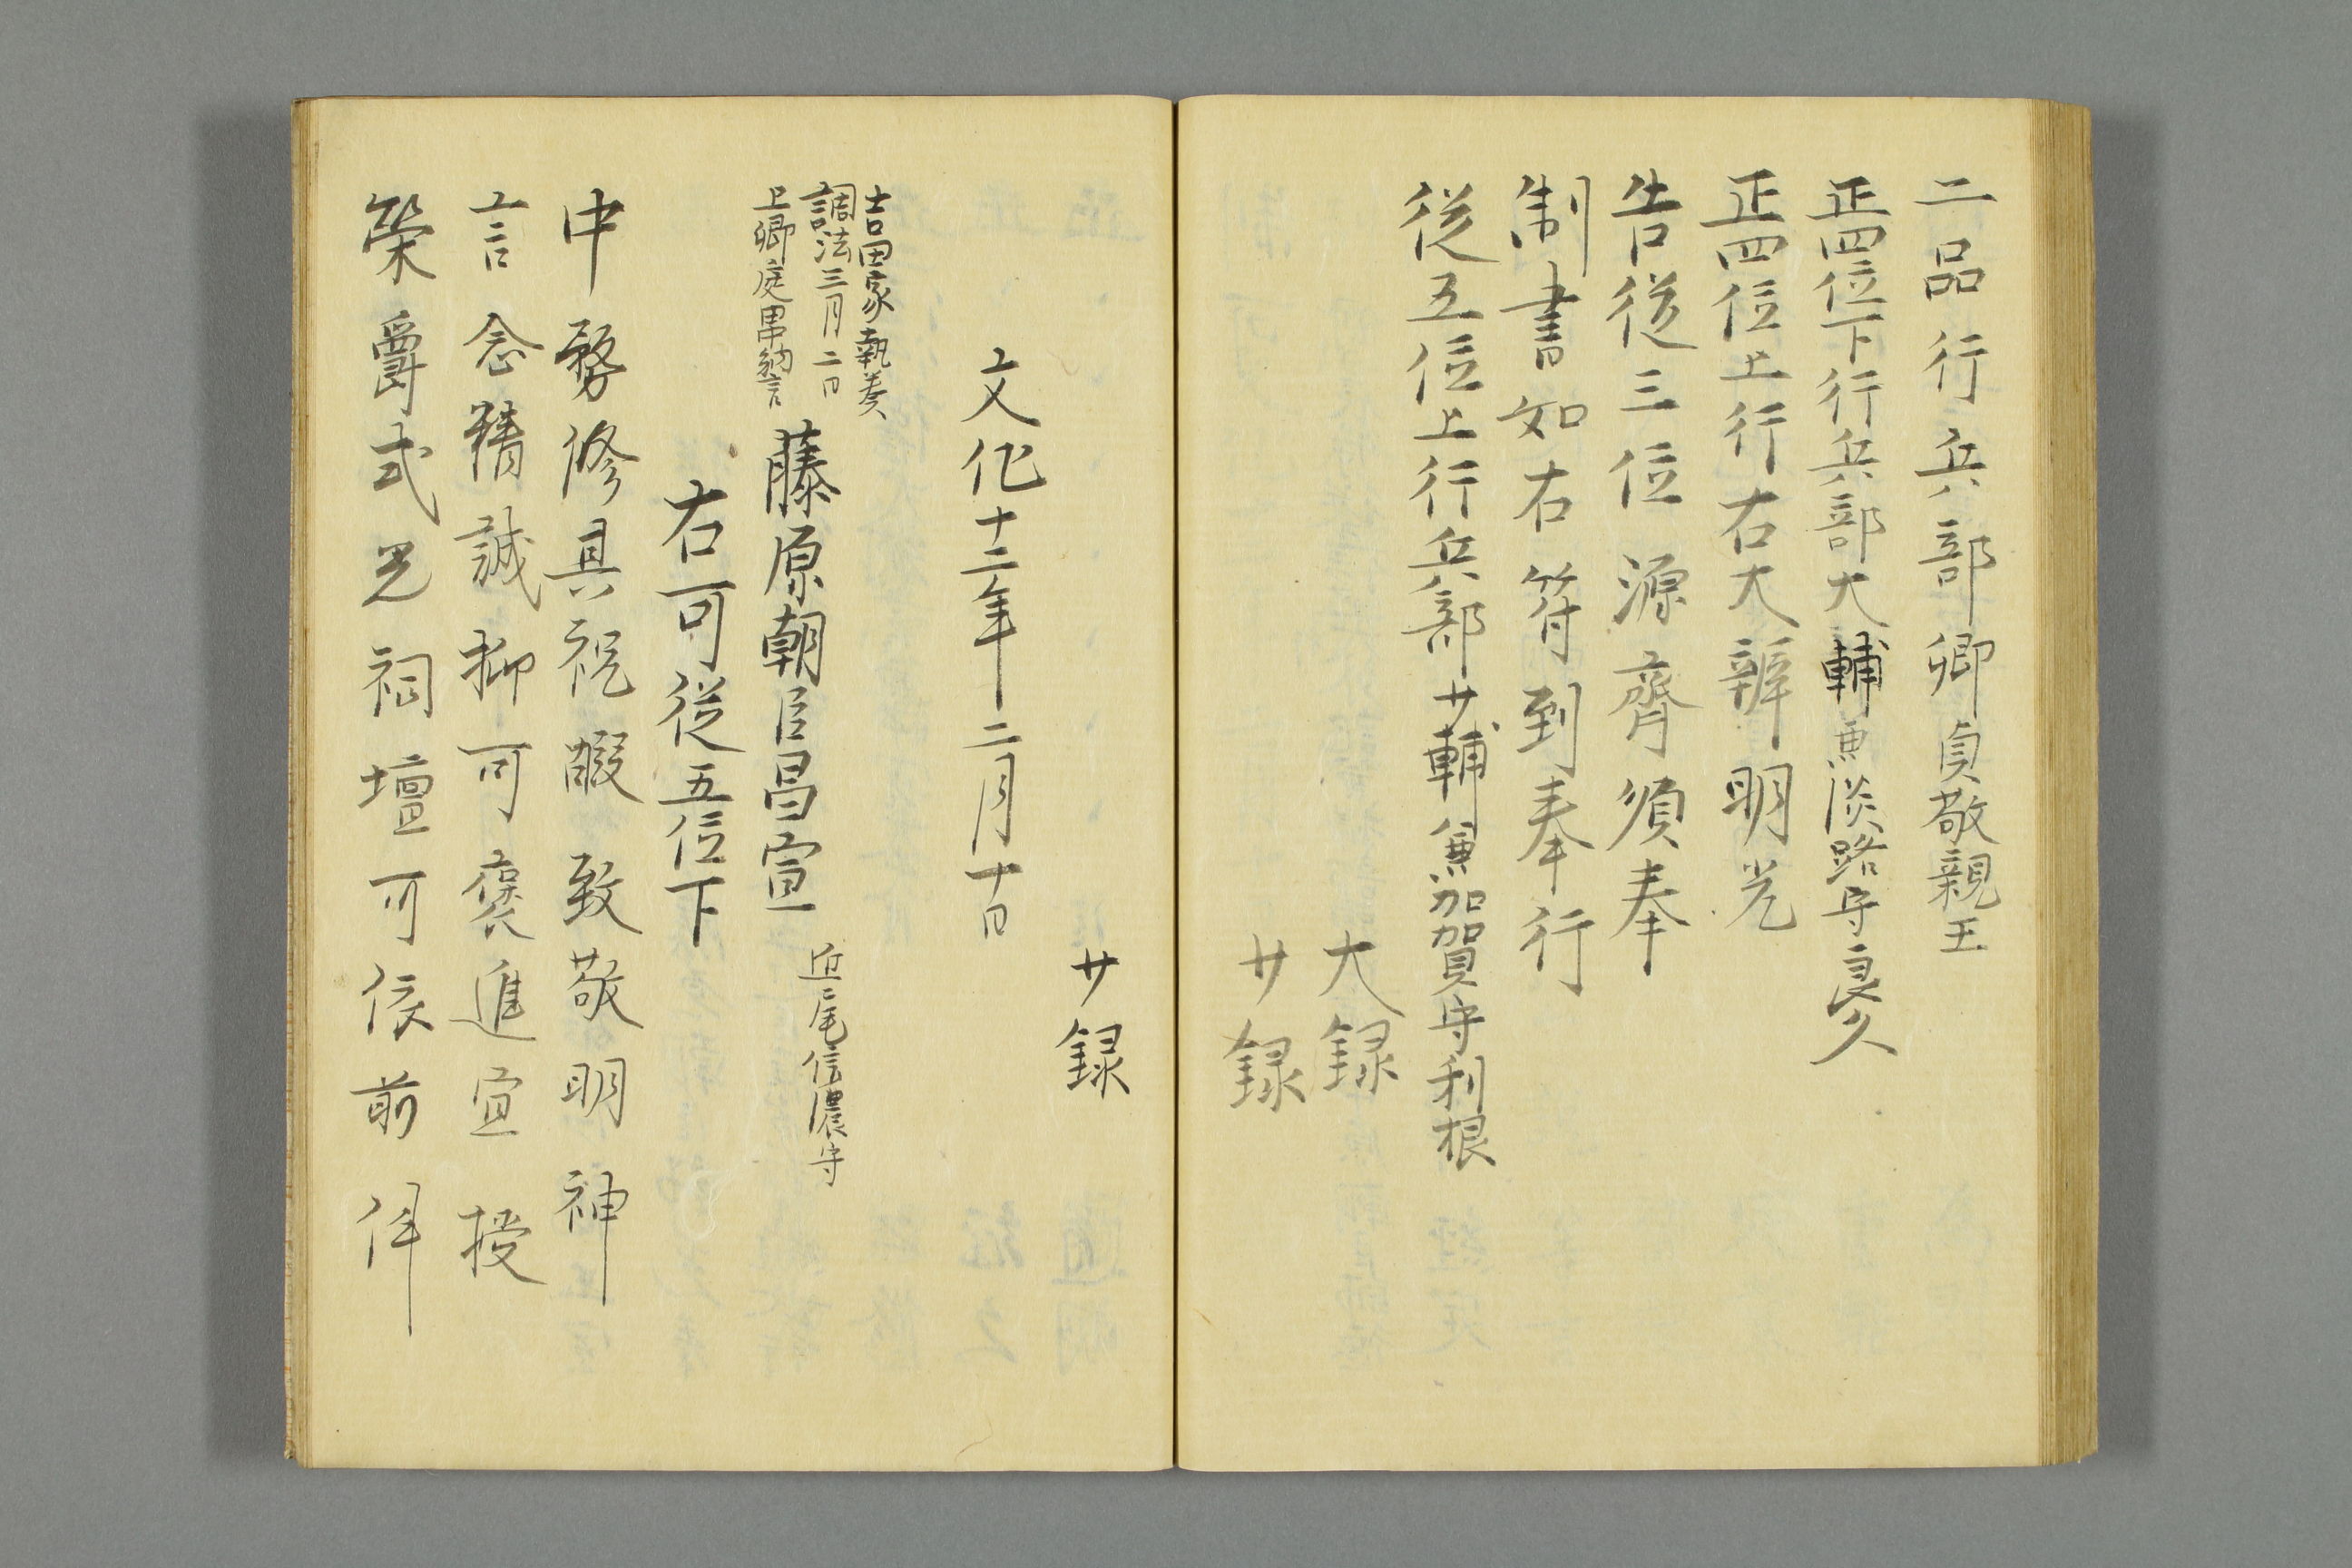 二品行兵部卿貞敬親王
正四位下行兵部大輔兼淡路守良久
正四位上行右大辨明光
告従三位源齊須奉
制書如右符到奉行
従五位上行兵部少輔兼加賀守利根
大録
少録
少録
文化十二年二月十日
吉田家執奏
調法三月二日
上卿庭田中納言
藤原朝臣昌宣
近尾信濃守
右可従五位下
中務修具祝嘏致敬明神
言念精誠抑可褒進宜授
榮爵式光祠壇可依前件